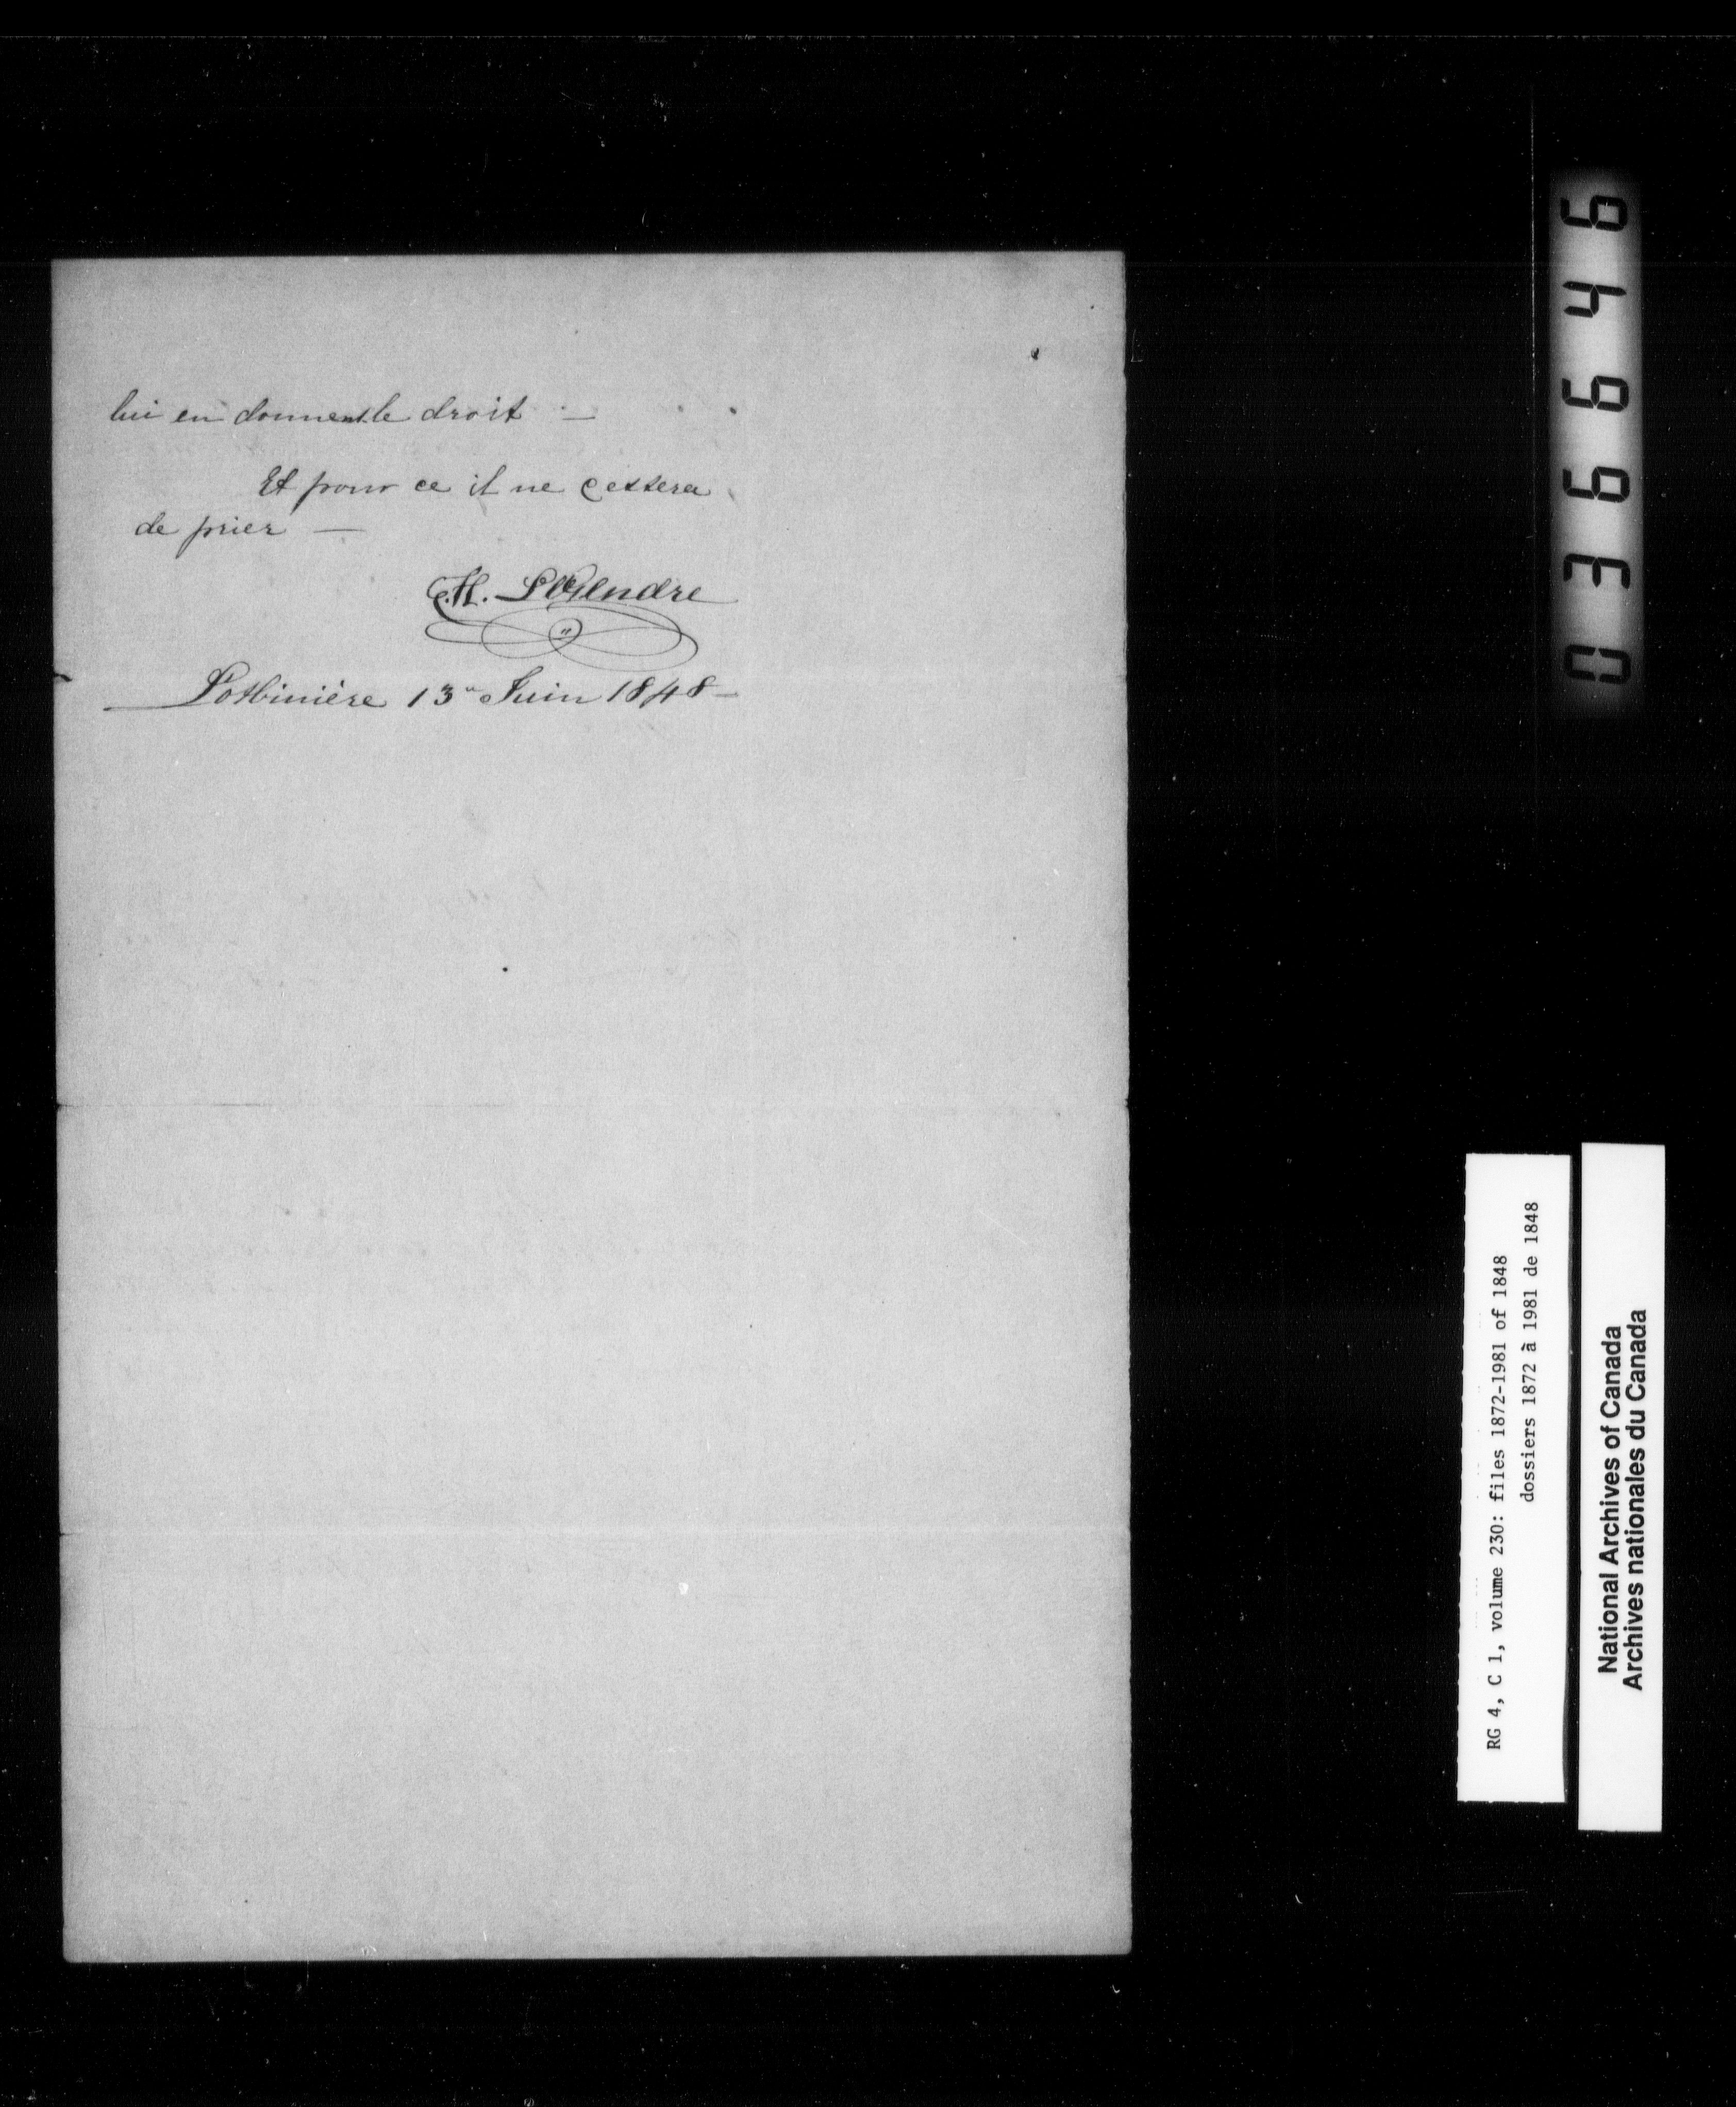 lui en donnent le droit —
Et pour ce il ne cessera
de prier —
H. LeGendre
Lotbinière 13 Juin 1848 —
036646
RG 4, C 1, volume 230: files 1872-1981 of 1848
dossiers 1872 à 1981 de 1848
National Archives of Canada
Archives nationales du Canada